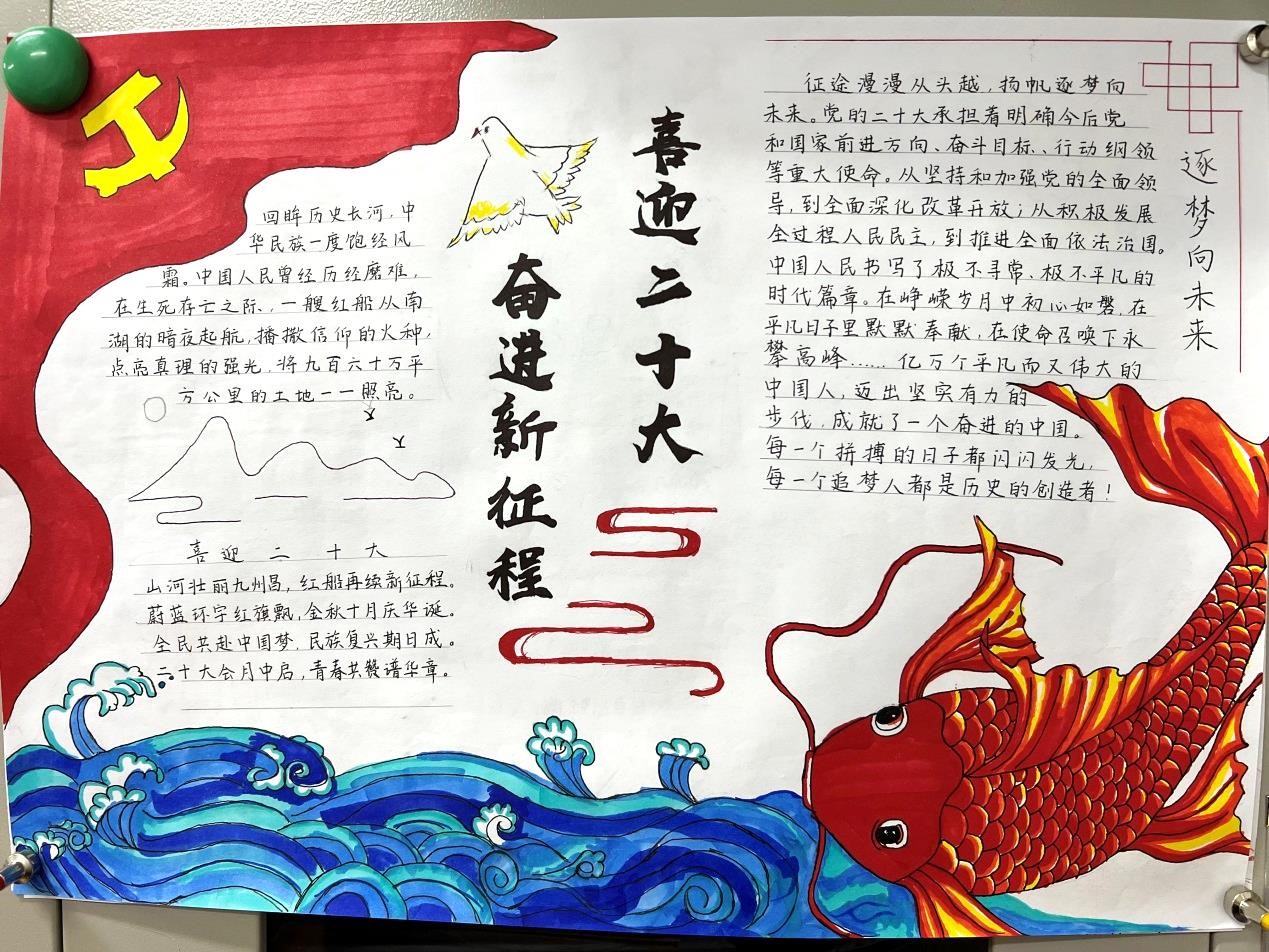 喜迎二十大
奋进新征程
回眸历史长河,中
华民族一度饱经风
霜。中国人民曾经历经磨难,
在生死存亡之际,一艘红船从南
湖的暗夜起航,播撒信仰的火种,
点亮真理的强光,将九百六十万平
方公里的土地一一照亮。
喜迎二十大
山河壮丽九州昌,红船再续新征程。
蔚蓝环宇红旗飘,金秋十月庆华诞。
全民共赴中国梦,民族复兴期日成。
二十大会月中启,青春共赞谱华章。
逐梦向未来
征途漫漫从头越,扬帆逐梦向
未来。党的二十大承担着明确今后党
和国家前进方向、奋斗目标、行动纲领
等重大使命。从坚持和加强党的全面领
导,到全面深化改革开放;从积极发展
全过程人民民主,到推进全面依法治国。
中国人民书写了极不寻常、极不平凡的
时代篇章。在峥嵘岁月中初心如磐,在
平凡日子里默默奉献,在使命召唤下永
攀高峰……亿万个平凡而又伟大的
中国人,迈出坚实有力的
步伐,成就了一个奋进的中国。
每一个拼搏的日子都闪闪发光,
每一个追梦人都是历史的创造者!